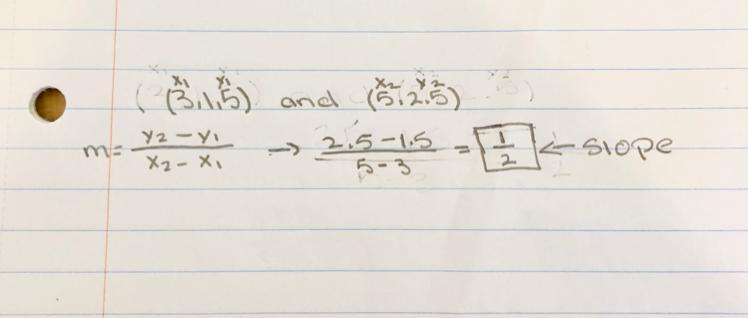 x₁ y₁ x₂ y₂
(3,1.5) and (5,2.5)
m = y₂ - y₁ / x₂ - x₁ → 2.5 - 1.5 / 5 - 3 = 1/2 ← slope